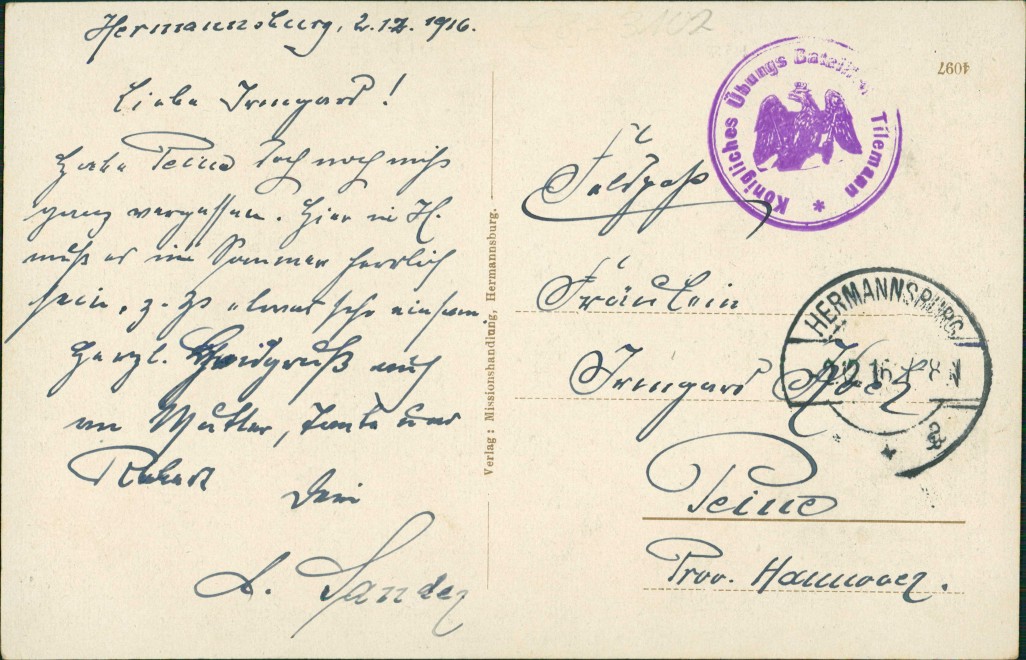 Hermannsburg, 2.12.1916.
Liebe Irmgard!
Habe Peine doch noch nicht
ganz vergessen. Hier in H.
muß es im Sommer herrlich
sein, z. Zt. etwas sehr einsam
Herzl. Heidgruß auch
an Mutter, Tante und
Robert
Dein
A. Sander
Verlag: Missionshandlung, Hermannsburg.
3102
4097
Königliches Übungs Bataillon Tilemann
Feldpost
Fräulein
Irmgard
HERMANNSBURG
2.12.16 8 N
a
Peine
Prov. Hannover.